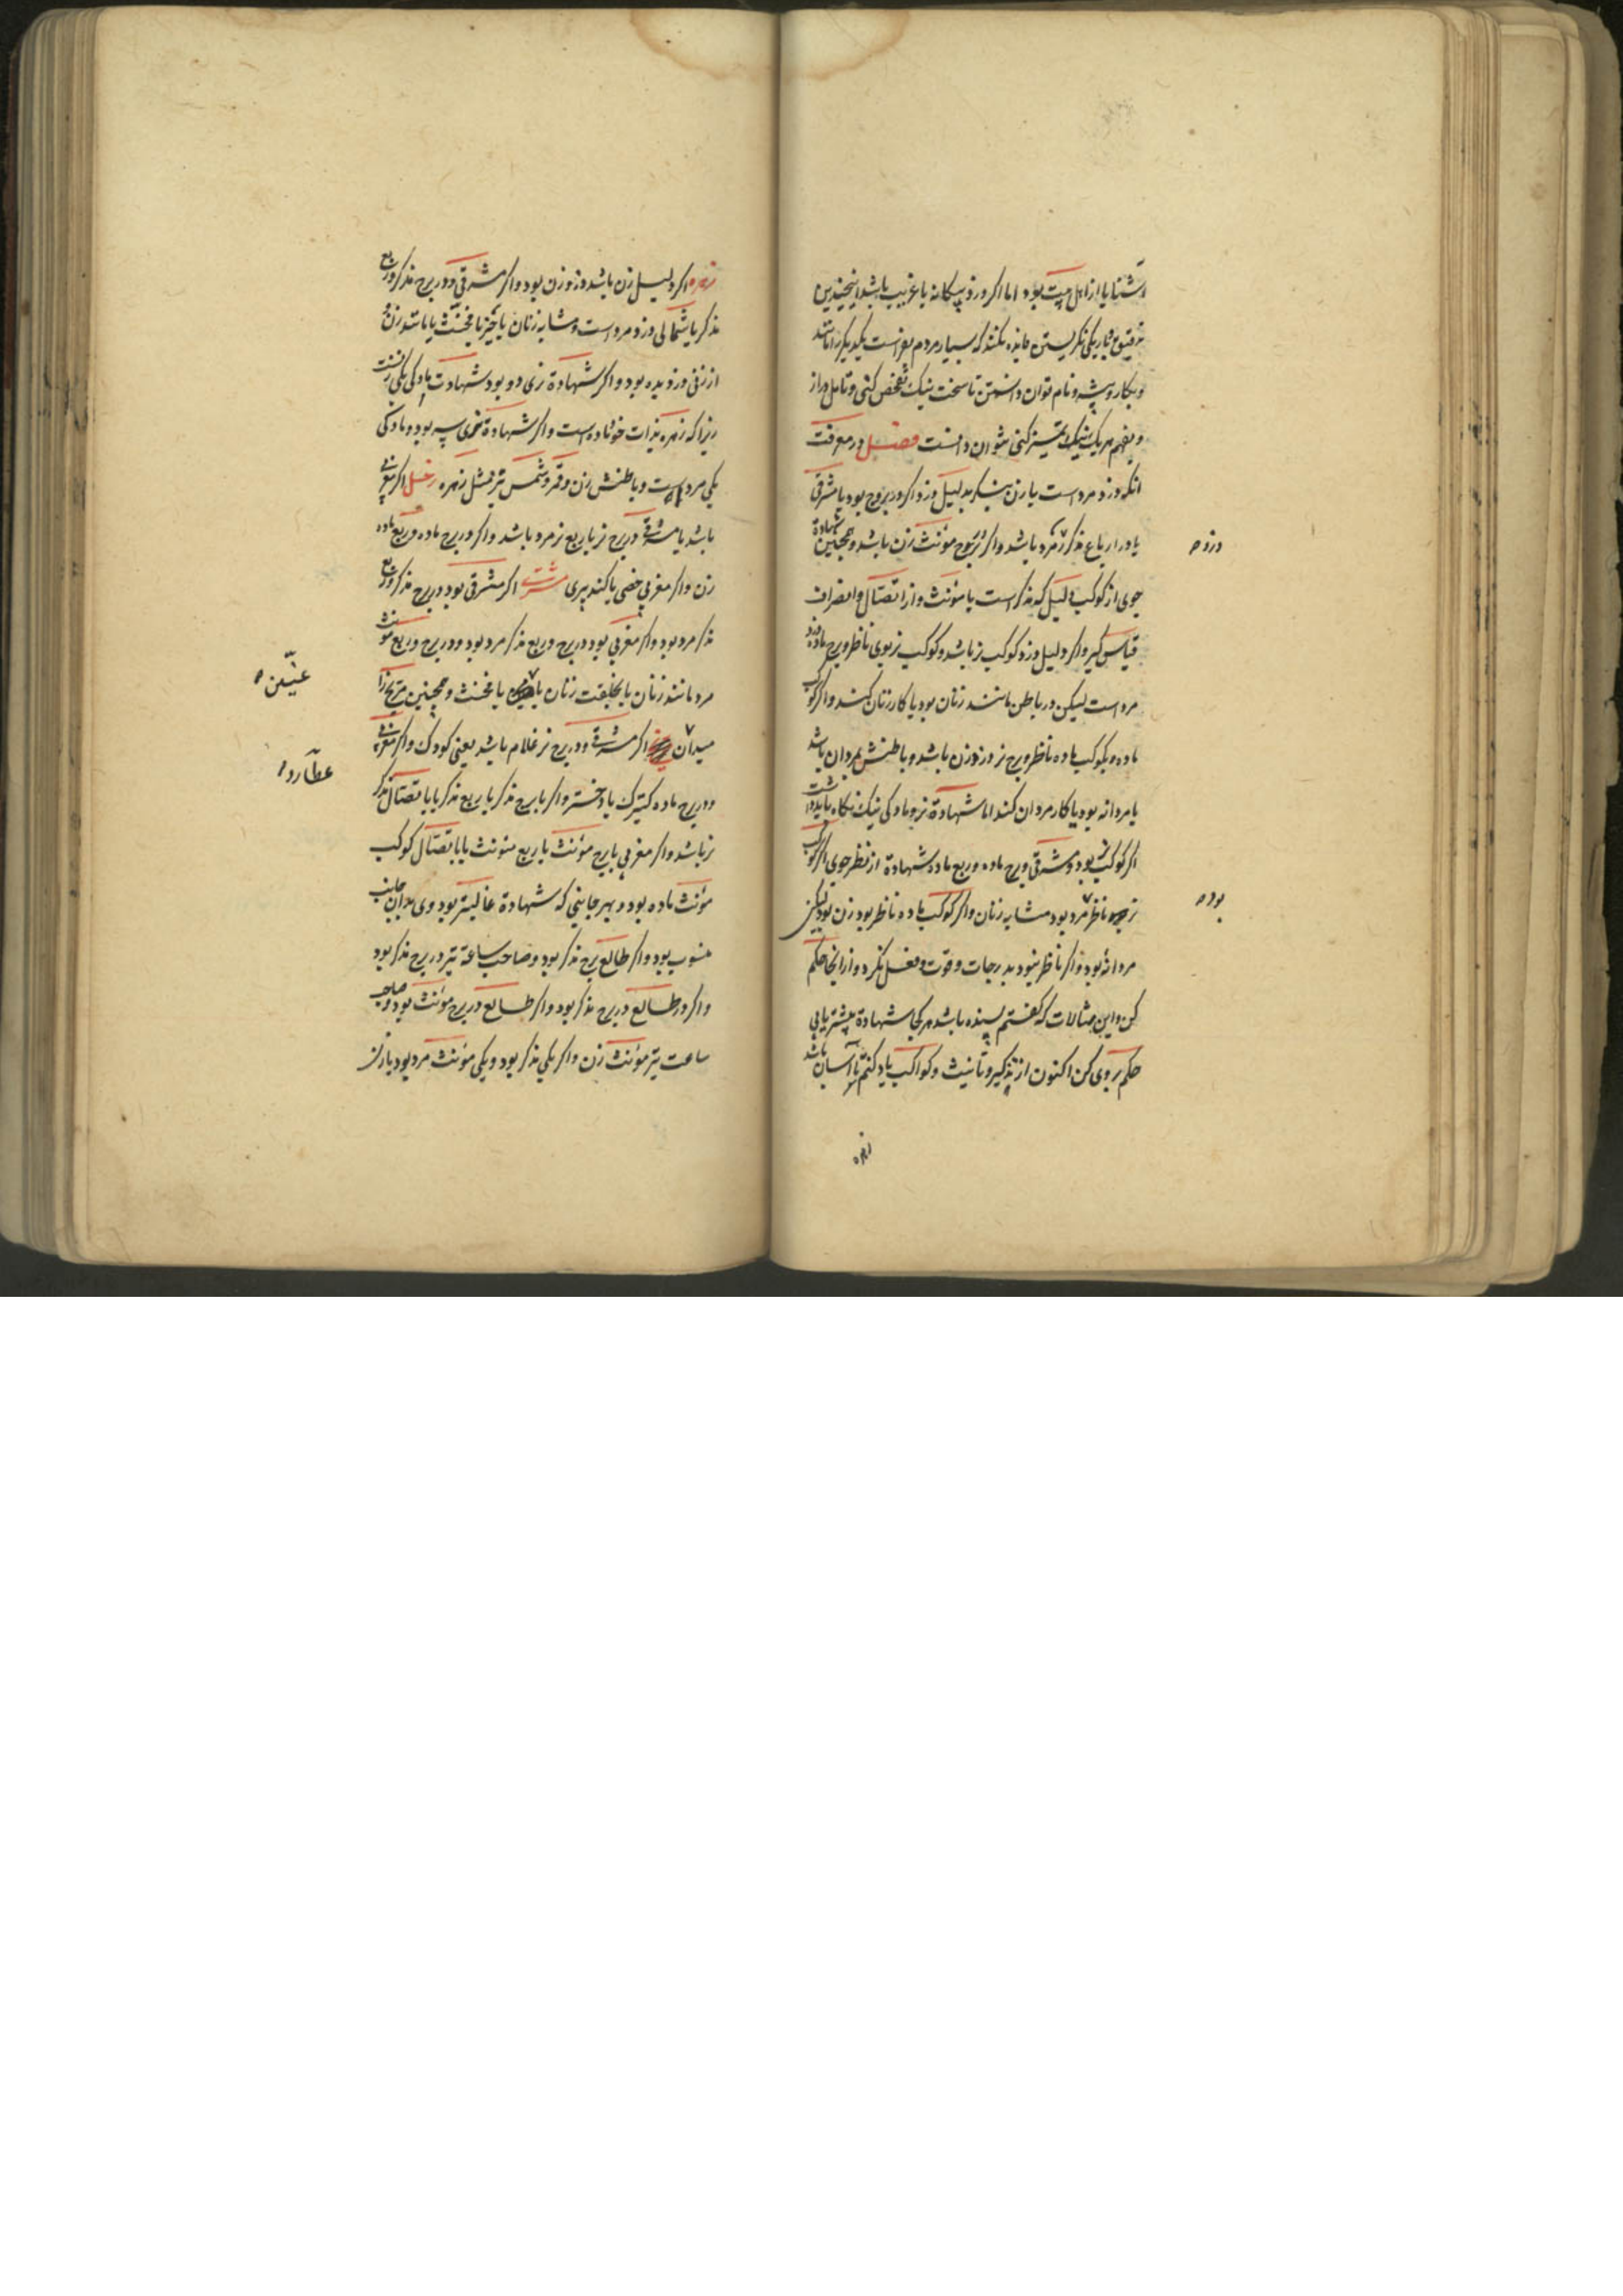 آشنا یا از اهل بیت بود اما اگر دزد بیگانه یا غریب باشد اینچندین
تدقیق و باریکی نگریستن فایده نکند که بسیار مردم بفراست یکدیگر را مانند
و بکار و پیشه و نام توان دانستن تا سخت نیک تفحص کنی و تامل دراز
و بفهم هر یک نیک تمییز کنی نتوان دانست فصل در معرفت
آنکه دزد مرد است یا زن بنگر بدلیل دزد اگر در بروج بود یا مشرقی
یا در ارباع مذکر مرد باشد و اگر در بروج مؤنث زن باشد و همچنین شهادة
جوی از کوکب دلیل که مذکر است یا مؤنث و از اتصال و انصراف
قیاس گیر و اگر دلیل دزد کوکب نر باشد و کوکب نر بوی ناظر و برج ماده دزد
مرد است لیکن در باطن مانند زنان بود یا کار زنان کند و اگر کوکب
ماده و کوکب ماده ناظر و برج نر دزد زن باشد و باطنش بمردان باشد
یا مردانه بود یا کار مردان کند اما شهادة نر و مادگی نیک نگاه باید داشت
اگر کوکب نر بود و مشرقی و برج ماده و ربع ماده شهادة از نظر جوی اگر کوکب
نر ناظر مرد بود مشابه زنان و اگر کوکب ماده ناظر بود زن بود لیکن
مردانه بود و اگر ناظر نبود بدرجات و قوت و فعل نگر و از آنجا حکم
کن و این مثالات که گفتم بسنده باشد هر کجا شهادة بیشتر یابی
حکم بروی کن اکنون از تذکیر و تأنیث و کواکب یاد کنم تا آسان باشد
دزد
بود
زهره
زهره اگر دلیل زن باشد دزد زن بود و اگر مشرقی و در برج مذکر و ربع
مذکر یا شمالی دزد مرد است و مشابه زنان یا حیز یا مخنث یا باشد زن
از زنی دزدیده بود و اگر شهادة نری دو بود شهادت مادگی یکی زنست
زیرا که زهره بذات خود ماده است و اگر شهادة نری سه بود و مادگی
یکی مرد است و باطنش زن و قمر و شمس نیز مثل زهره زحل اگر مغربی
باشد یا مشرقی در برج نر یا ربع نر مرد باشد و اگر در برج ماده و ربع ماده
زن و اگر مغربی خصی یا کنده پیری مشتری اگر مشرقی بود در برج مذکر و ربع
مذکر مرد بود و اگر مغربی بود در برج و ربع مذکر مرد بود و در برج و ربع مؤنث
مرد مانند زنان یا بخلقت زنان یا یا مخنث و همچنین مریخ را
میدان اگر مشرقی و در برج نر غلام باشد یعنی کودک و اگر مغربی
و در برج ماده کنیزک یا دختر و اگر با برج مذکر یا ربع مذکر یا باتصال مذکر
نر باشد و اگر مغربی با برج مؤنث یا ربع مؤنث یا باتصال کوکب
مؤنث ماده بود و بهر جانبی که شهادة غالبتر بود وی بدان جانب
منسوب بود و اگر طالع برج مذکر بود و صاحب ساعة نیز در برج مذکر بود
و اگر در طالع در برج مذکر بود و اگر طالع در برج مؤنث بود و صاحب
ساعت نیز مؤنث زن و اگر یکی مذکر بود و یکی مؤنث مرد بود یا زن
عنین
عطارد